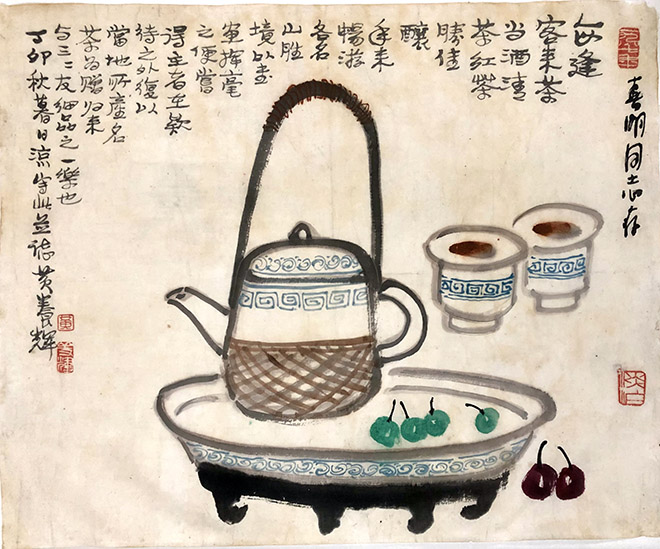 喜明同志存
每逢
客来茶
当酒清
茶红茶
胜佳
酿
年来
畅游
各名
山胜
境以画
笔挥毫
之便尝
得主者在款
待之外复以
当地所产名
茶为赠归来
与三二友细品之一乐也
丁卯秋暮日凉写此并志黄养辉